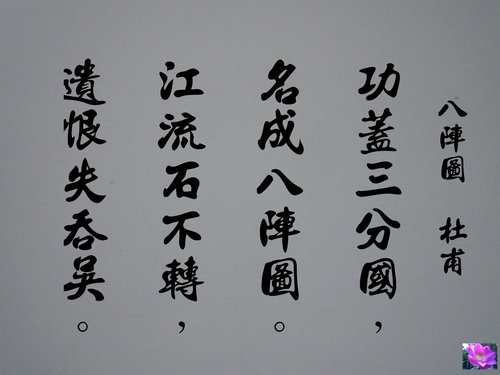 八陣圖 杜甫
功蓋三分國，
名成八陣圖。
江流石不轉，
遺恨失吞吳。